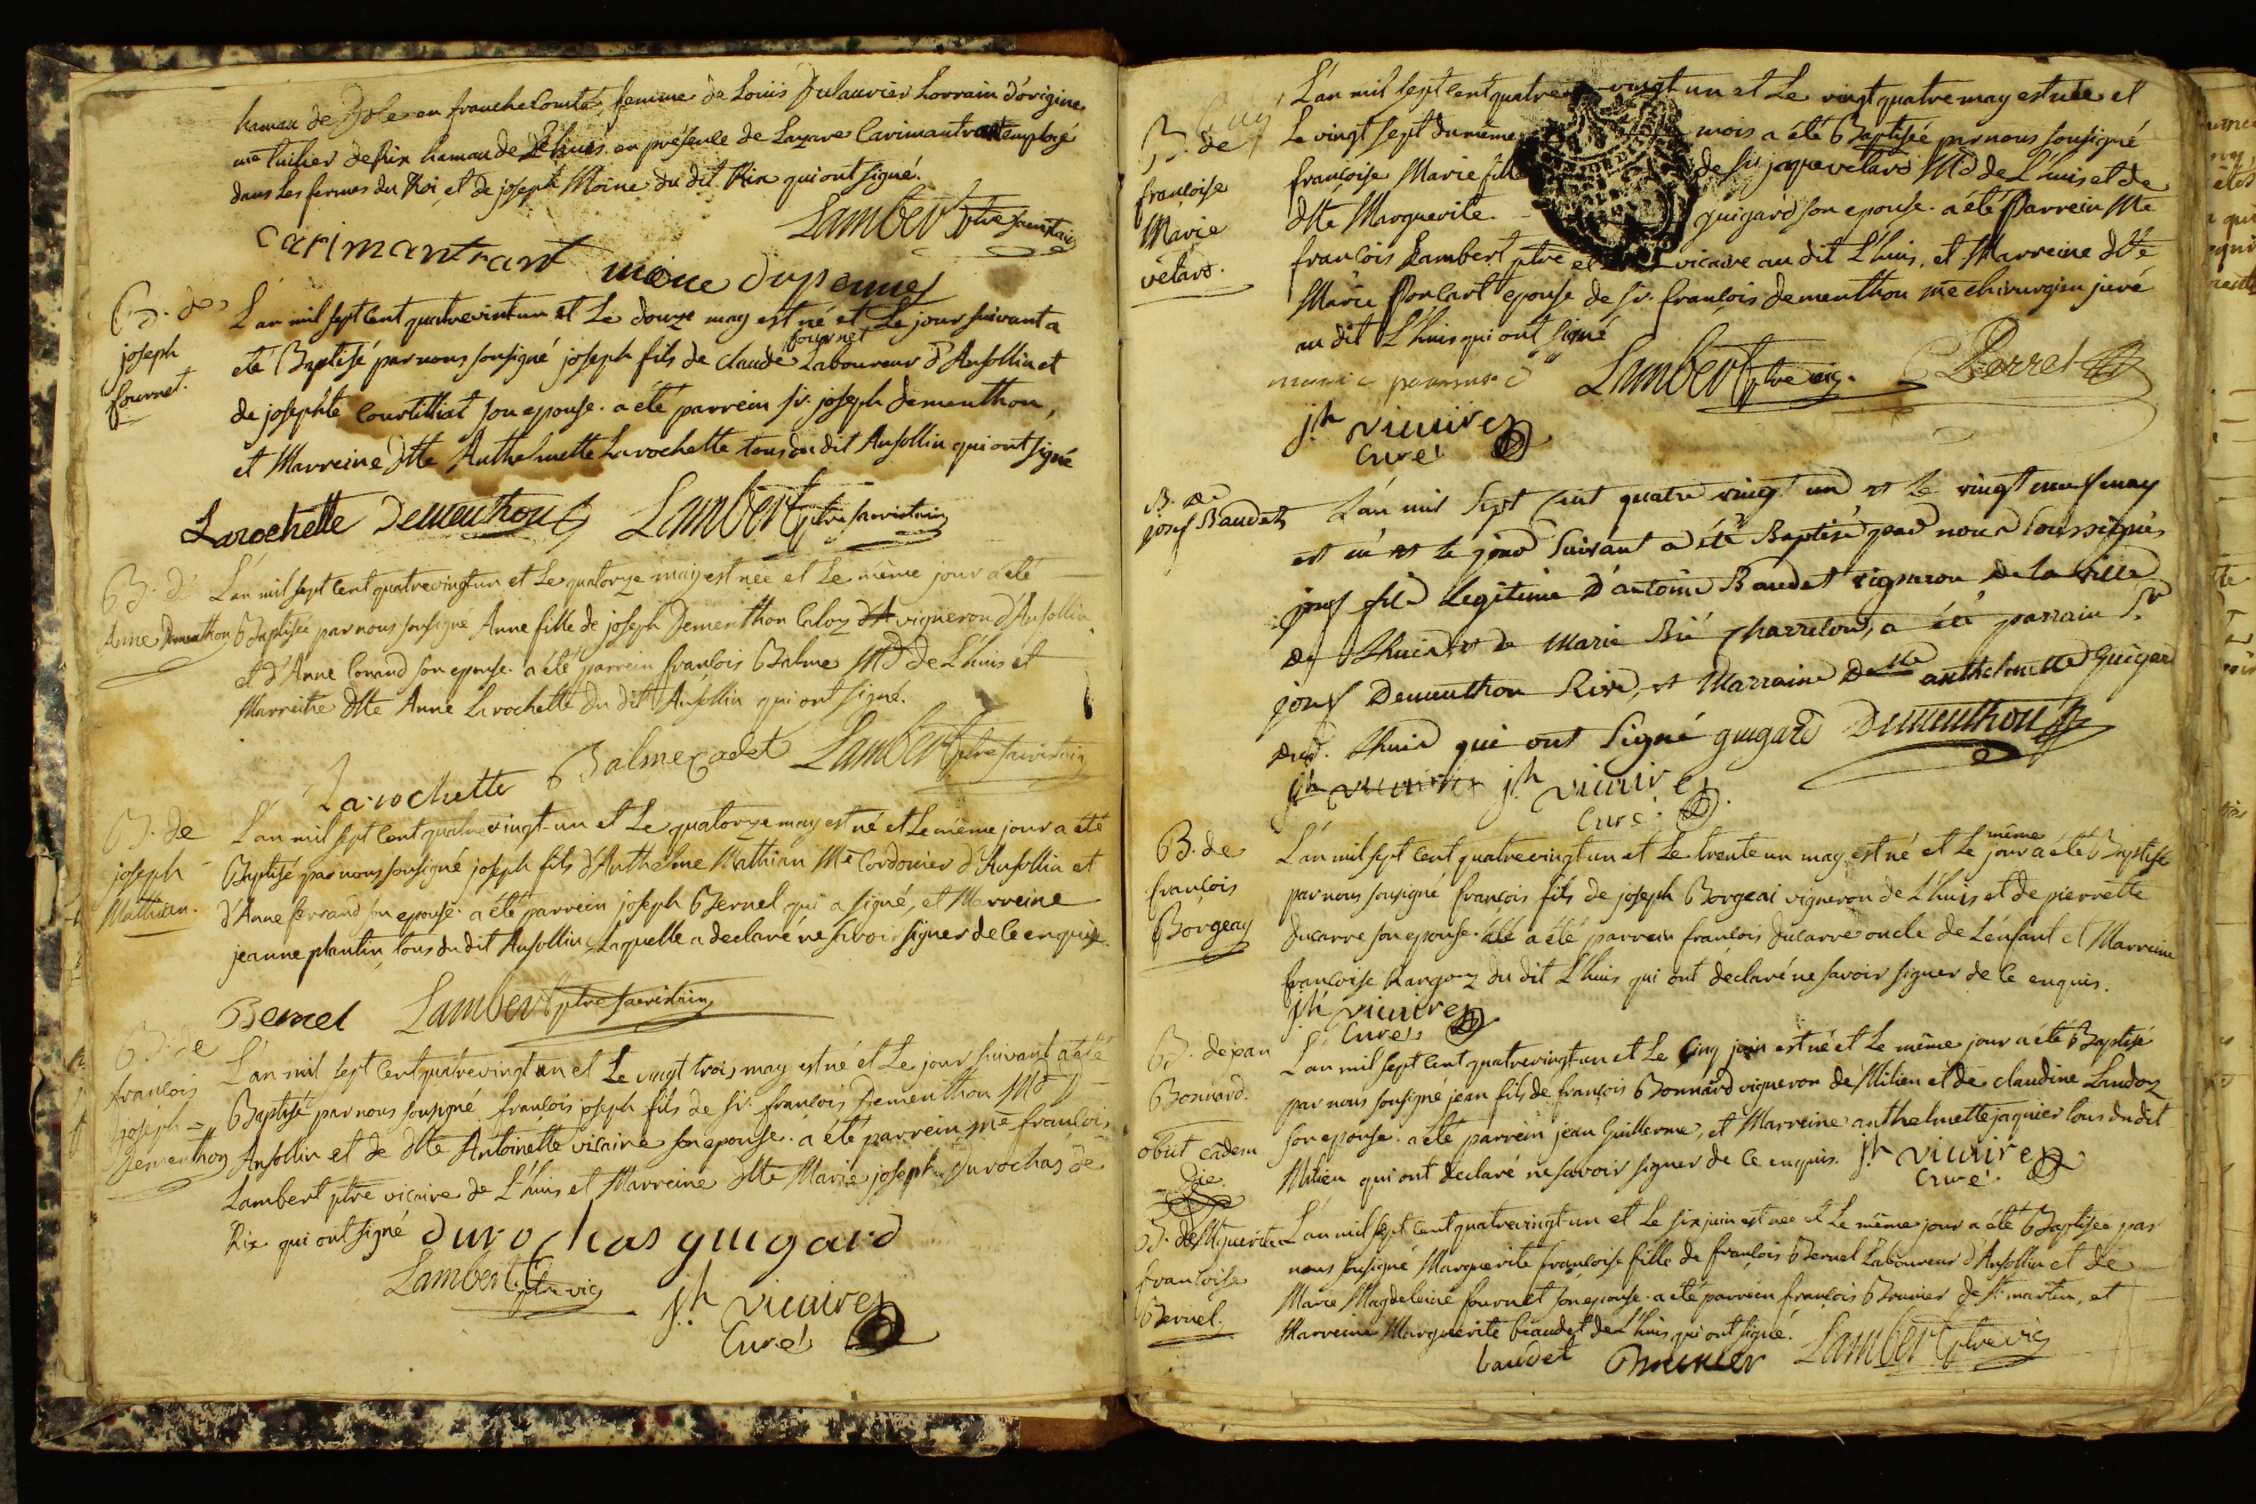 hamau de Dole en franche Comté, femme de Louis Dulaurier Lorrain d'origine
me tuilier de Rix hamau de L'huis en présence de Lazare Carimantrant employé
dans les fermes du Roi, et de joseph Moine du dit Rix qui ont signé.
Lambert ptre sacristain
Carimantrant moine
B. de
joseph
fournet.
L'an mil sept cent quatrevint un et Le douze may est né et Le jour suivant a
eté Baptisé par nous sousigné joseph fils de claude fournet Laboureur d'Ansollin et
de josephte Courtilliat son epouse. a été parrein sr. joseph Dementhon,
et Marreine dlle Anthelmette Larochette tous du dit Ansollin qui ont signé
Larochette Dementhon Lambert ptre sacristain
B. de
Anne Dementhon
L'an mil sept cent quatrevingt un et Le quatorze may est née et Le même jour a eté
Baptisée par nous sousigné Anne fille de joseph Dementhon Caloz vigneron d'Ansollin
et d'Anne Conand son epouse. a été parrein françois Balme Md de L'huis et
Marreine dlle Anne Larochette du dit Ansollin qui ont signé.
Larochette Balme Cadet Lambert ptre sacristain
B. de
joseph
Mathian.
L'an mil sept cent quatrevingt-un et Le quatorze may est né et Le même jour a été
Baptisé par nous sousigné joseph fils d'Anthelme Mathian Me Cordonier d'Ansollin et
d'Anne ferrand son epouse. a été parrein joseph Bernel qui a signé, et Marreine
jeanne plantin, tous du dit Ansollin, Laquelle a declaré ne savoir signer de ce enquise.
Bernel Lambert ptre sacristain
B. de
françois
joseph =
Dementhon
L'an mil sept cent quatrevingt un et Le vingt trois may est né et Le jour suivant a été
Baptisé par nous sousigné françois joseph fils de Sr. françois Dementhon Md D
Ansollin et de dlle Antoinette vicaire son epouse. a été parrein me françois
Lambert ptre vicaire de L'huis et Marreine dlle Marie joseph Durochas de
Rix qui ont signé durochas guigard
Lambert ptre vic
jh vicaire
Curé
B. de
françoise
Marie
vétard.
L'an mil sept cent quatre vingt un et Le vingt quatre may est née et
Le vingt sept du même mois a été Baptisée par nous sousigné
françoise Marie fille de sr. jaque vetard Md de L'huis et de
dlle Marguerite guigard son epouse. a été Parrein Me
françois Lambert ptre et vicaire au dit L'huis, et Marreine dlle
Marie Poncart epouse de sr. françois dementhon me chirurgien juré
au dit L'huis qui ont signé
Lambert ptre vic. Perret
jh vicaire
Curé
B. de
josef Baudet
L'an mil Sept Cent quatre vingt un et Le vingt neuf may
est né et le jour Suivant a été Baptisé par nous Soussignés
josef fils Legitime D'antoine Baudet vigneron De la ville
De Lhuis et de Marie Bié charreton, a été parrain Sr
josef Dementhon Rivé, et Marraine Delle anthelmette Guigard
Dud. Lhuis qui ont Signé guigard Dementhon
jh vicaire jh vicaire
Curé.
B. de
françois
Borgeay
L'an mil sept cent quatrevingt un et Le trente un may est né et Le même jour a été Baptisé
par nous sousigné françois fils de joseph Borgeai vigneron de L'huis et de pierrette
Ducarre son epouse. a été parrein françois Ducarre oncle de L'enfant et Marreine
françoise Rangoz du dit L'huis qui ont declaré ne savoir signer de ce enquis.
jh vicaire
Curé
B. de jean
Bonnard.
obiit eadem
Die.
L'an mil sept cent quatrevingt un et Le Cinq juin est né et Le même jour a été Baptisé
par nous sousigné jean fils de françois Bonnard vigneron de Milieu et de claudine Landoz
son epouse. a été parrein jean Guillerme, et Marreine anthelmette jaquier tous du dit
Milieu qui ont declaré ne savoir signer de ce enquis. jh vicaire
Curé.
B. de Mguerite
françoise
Bernel.
L'an mil sept cent quatrevingt-un et Le six juin est née et Le même jour a été Baptisée par
nous sousigné Marguerite françoise fille de françois Bernel Laboureur d'Ansollin et de
Marie Magdeleine fournet son epouse. a été parrein françois Brunier de st. martin, et
Marreine Marguerite Beaudet de L'huis qui ont signé.
baudet Brunier Lambert ptre vic